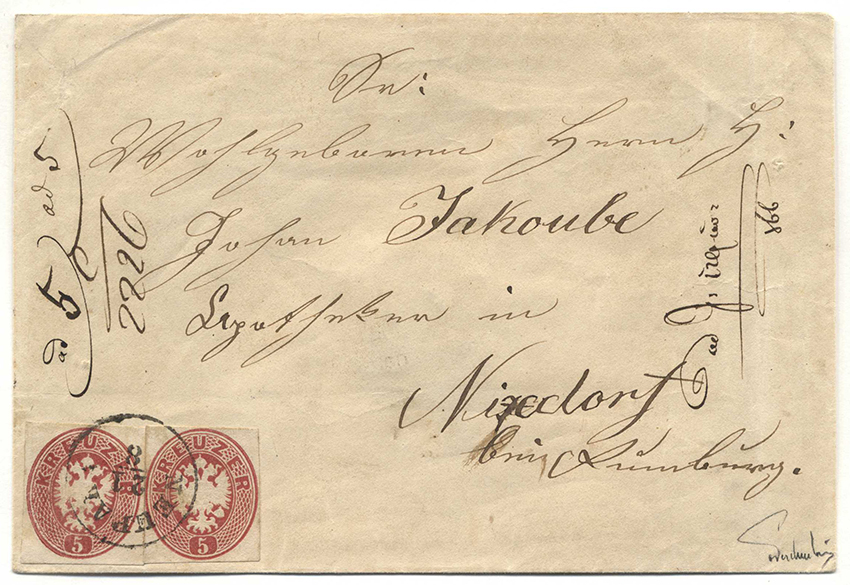 Sr:
Wohlgeboren Herrn H:
Johan Jakoube
Apotheker in
Nixdorf
bei Rumburg.
ad 5 ad 5
2226
ad
866
KREUZER
5
KREUZER
5
NEUPAKA